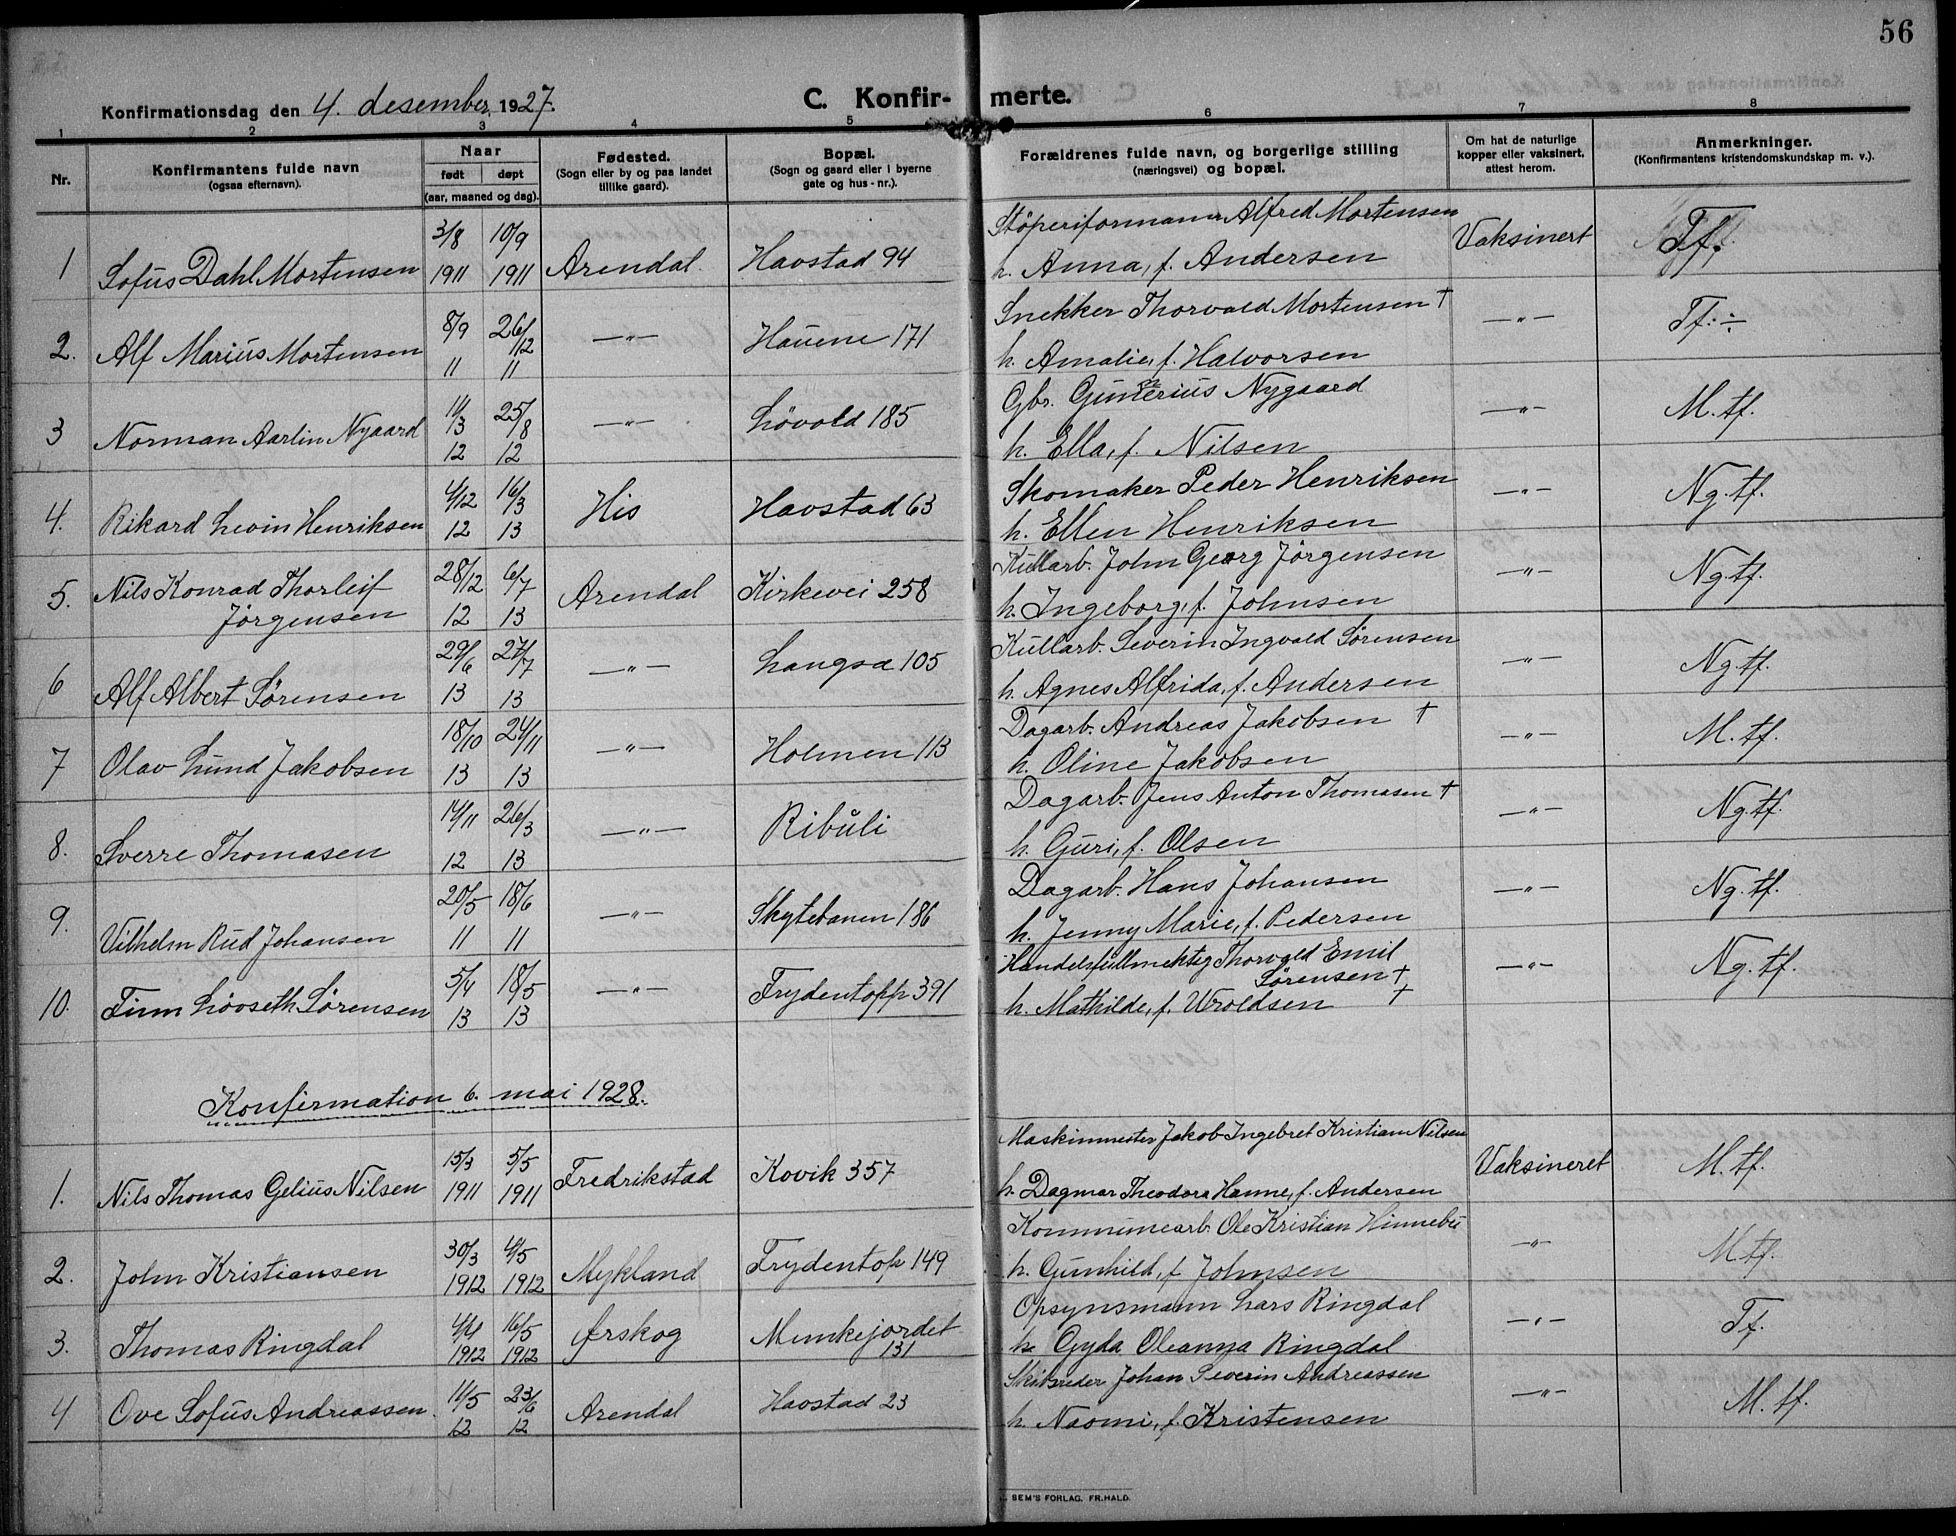 56
Konfirmationsdag den 4. desember 1927.
C. Konfir- merte.
1 2 3 4 5 6 7 8
Nr.
Konfirmantens fulde navn
(ogsaa efternavn).
Naar
født døpt
(aar, maaned og dag).
Fødested.
(Sogn eller by og paa landet
tillike gaard).
Bopæl.
(Sogn og gaard eller i byerne
gate og hus-nr.).
Forældrenes fulde navn, og borgerlige stilling
(næringsvei) og bopæl.
Om hat de naturlige
kopper eller vaksinert,
attest herom.
Anmerkninger.
(Konfirmantens kristendomskundskap m. v.).
3/8 10/9 Støperiformann Alfred Mortensen
1 Sofus Dahl Mortensen 1911 1911 Arendal. Havstad 94 h. Anna, f. Andersen Vaksinert Tf.
8/9 26/12 Snekker Thorvald Mortensen †
2. Alf Marius Mortensen 11 11 —"— Hauene 171 h. Amalie, f. Halvorsen —"— Tf. ÷
11/3 25/8 Gbr. Gunnerius Nygaard
3 Norman Aarlin Nygaard 12 12 —"— Løvold 185 h. Ella, f. Nilsen —"— M.tf.
4/12 16/3 Skomaker Peder Henriksen
4. Rikard Levin Henriksen 12 13 His Havstad 63 h. Ellen Henriksen —"— Ng.tf.
5. Nils Konrad Thorleif 28/12 6/7 Arendal Kirkevei 258 Kullarb. John Georg Jørgensen —"— Ng.tf.
Jørgensen 12 13 h. Ingeborg, f. Johnsen
29/6 27/7 Kullarb. Severin Ingvald Sørensen
6 Alf Albert Sørensen 13 13 —"— Langsæ 105 h. Agnes Alfrida, f. Andersen —"— Ng.tf.
18/10 24/11 Dagarb. Andreas Jakobsen †
7 Olav Lund Jakobsen 13 13 —"— Holmen 113 h. Oline Jakobsen —"— M.tf.
14/11 26/3 Dagarb. Jens Anton Thomasen †
8. Sverre Thomasen 12 13 —"— Ribuli h. Guri, f. Olsen —"— Ng.tf.
20/5 18/6 Dagarb. Hans Johansen
9. Vilhelm Rud Johansen 11 11 —"— Skytebanen 186 h. Jenny Marie, f. Pedersen —"— Ng.tf.
5/4 18/5 Handelsfullmektig Thorvald Emil
Sørensen †
10. Finn Løvseth Sørensen 13 13 —"— Frydentopp 391 h. Mathilde, f. Uroldsen † —"— Ng.tf.
Konfirmation 6. mai 1928.
15/3 5/5 Maskinmester Jakob Ingebret Kristian Nilsen
1. Nils Thomas Gelius Nilsen 1911 1911 Fredrikstad Kovik 357 h. Dagmar Theodora Hanne, f. Andersen Vaksineret M.tf.
30/3 4/5 Kommunearb. Ole Kristian Hinnebu
2. John Kristiansen 1912 1912 Mykland Frydentop 149 h. Gunhild, f. Johnsen —"— M.tf.
4/4 16/5 Opsynsmann Lars Ringdal
3. Thomas Ringdal 1912 1912 Ørskog Munkejordet 131 h. Gyda Oleanna Ringdal —"— Tf.
11/5 23/6 Skibsreder Johan Severin Andreassen
4 Ove Sofus Andreassen. 12 12 Arendal Havstad 23 h. Naomi, f. Kristensen —"— M.tf.
SEM'S FORLAG. FR.HALD.